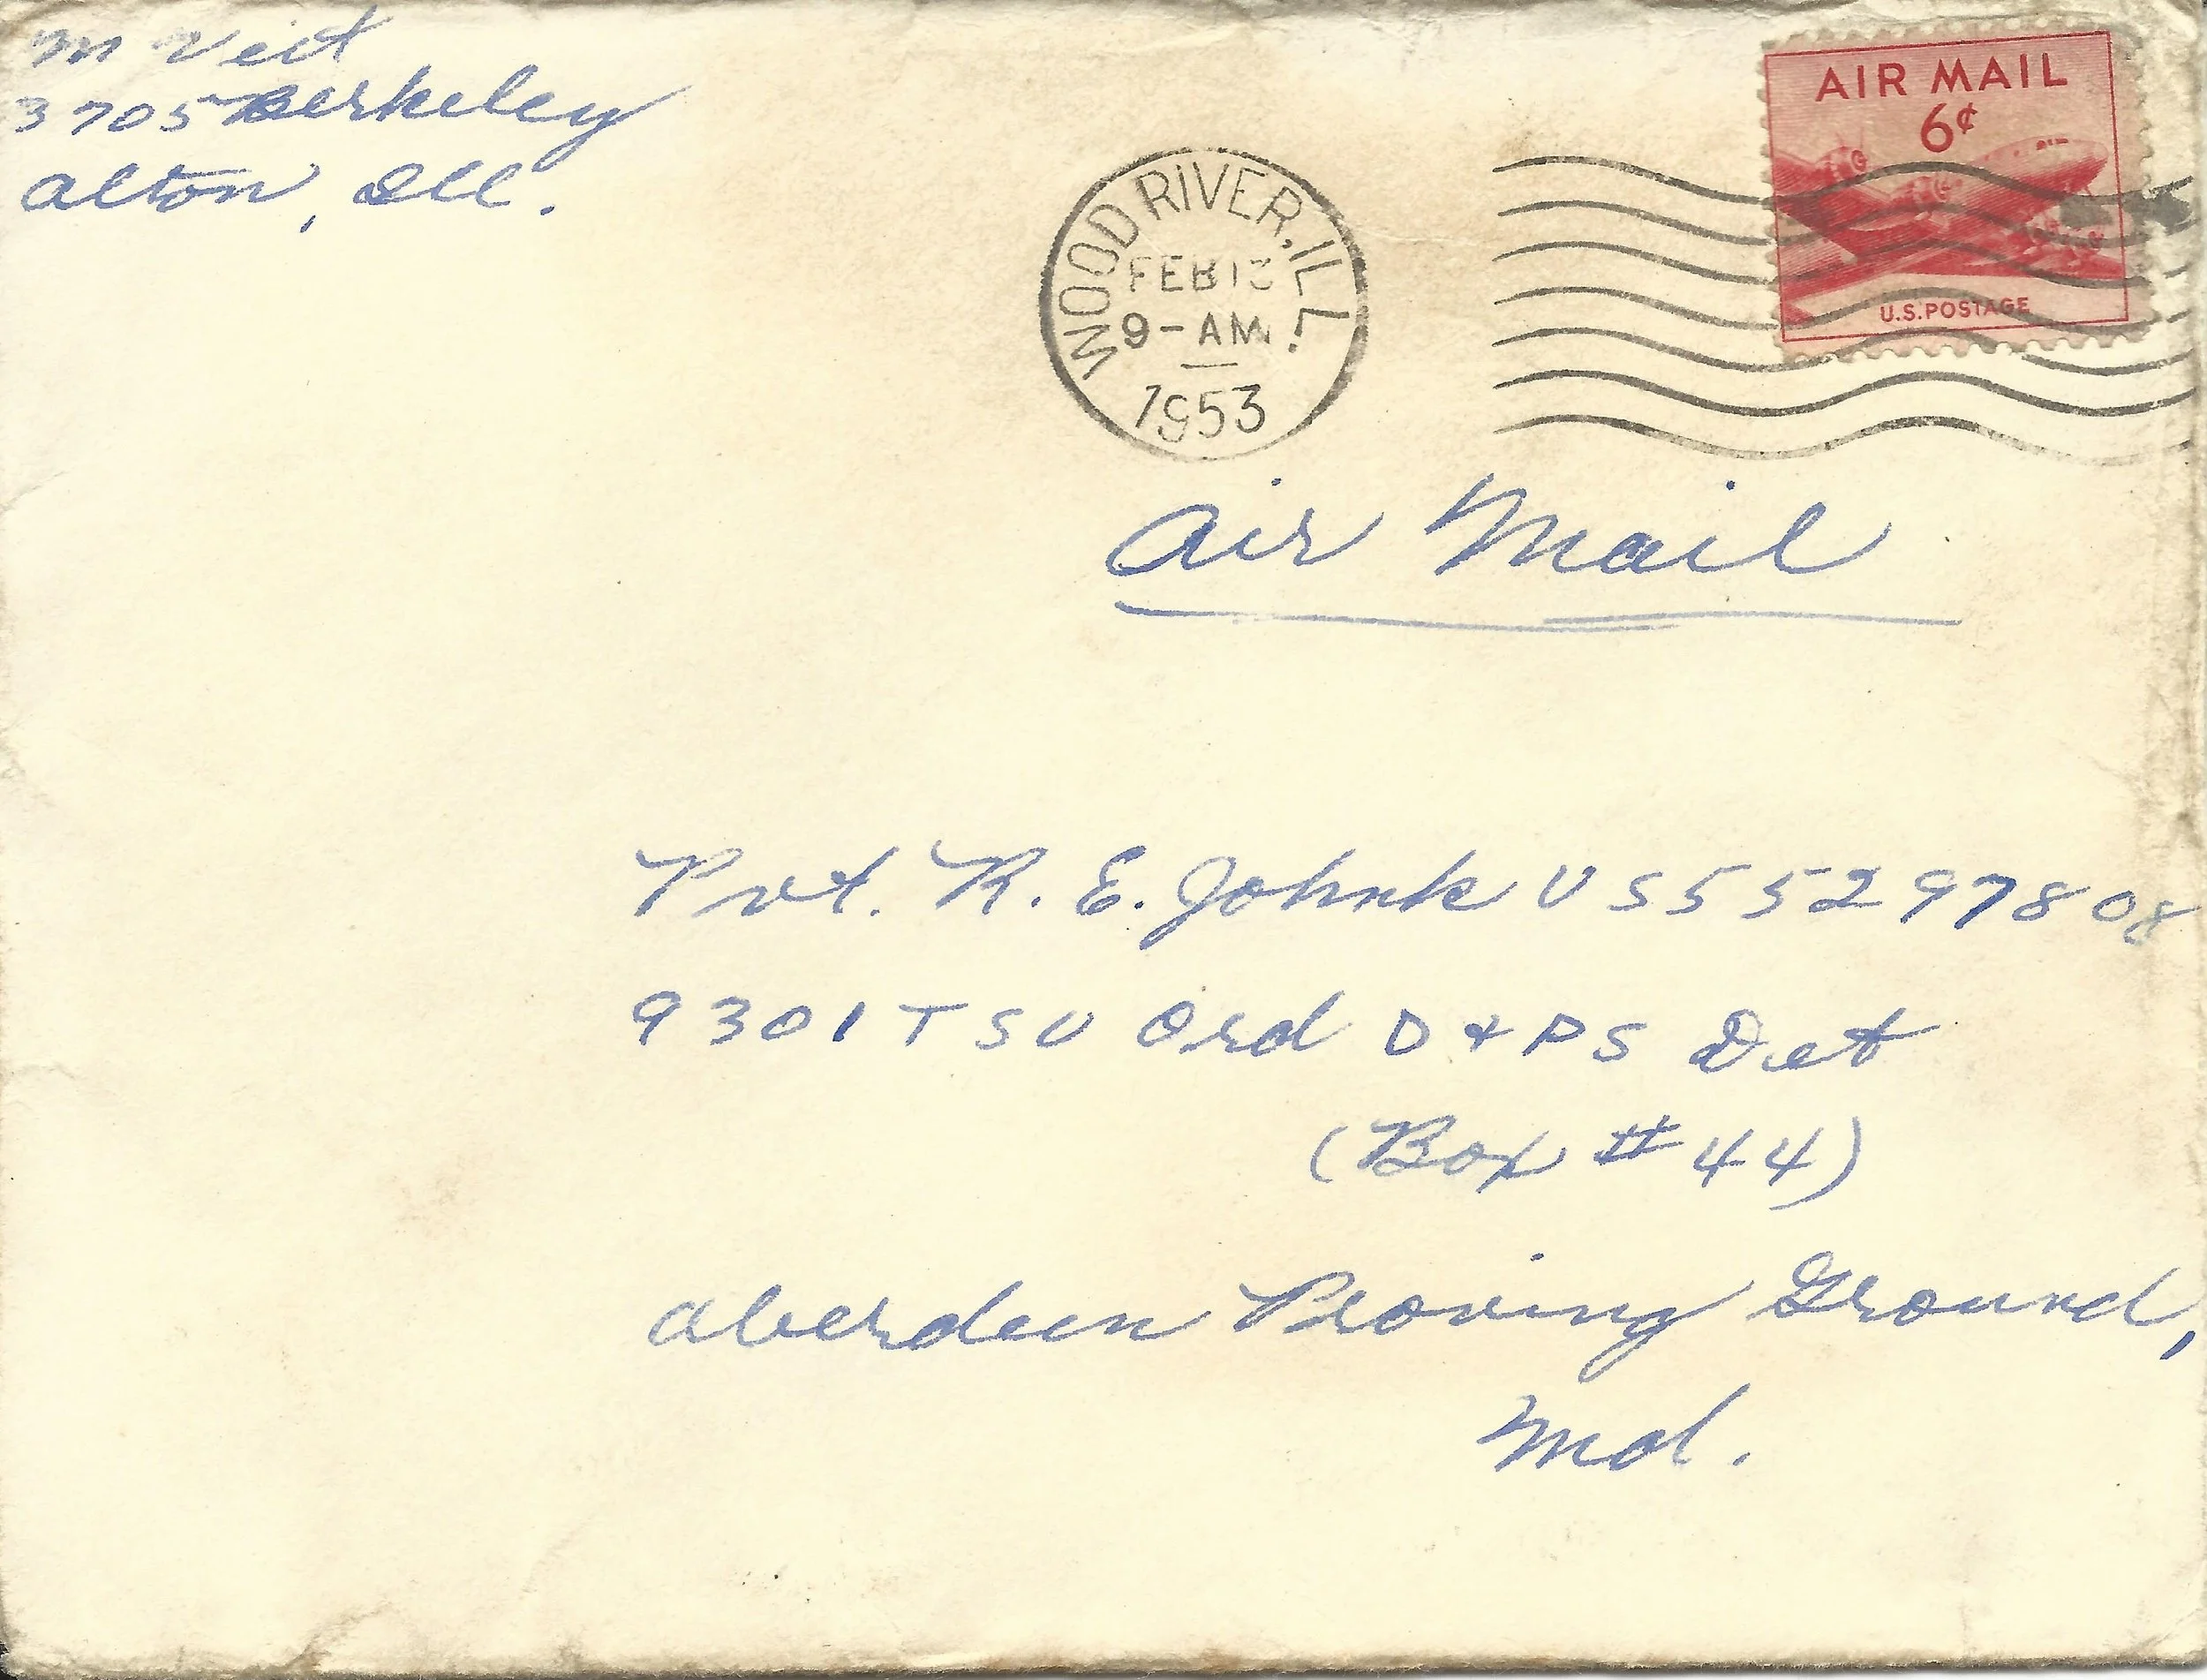 M Veit
3705 Berkeley
Alton, Ill.
AIR MAIL
6¢
U.S. POSTAGE
WOOD RIVER, ILL.
FEB
9-AM
1953
Air Mail
Pvt. R. E. Johnk US55297808
9301 TSU Ord D & PS Det
(Box # 44)
Aberdeen Proving Ground,
Md.